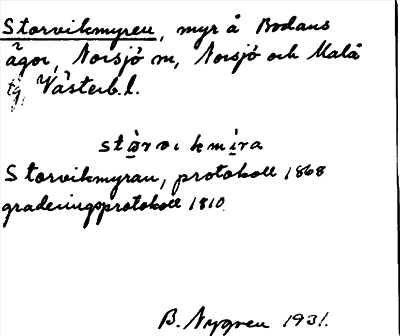 Storvikmyren, myr å Bodans
ägor, Norsjö sn, Norsjö och Malå
tg, Västerb.l.
stòrvikmìra
Storvikmyran, protokoll 1868
graderingsprotokoll 1810.
B. Nygren 1931.